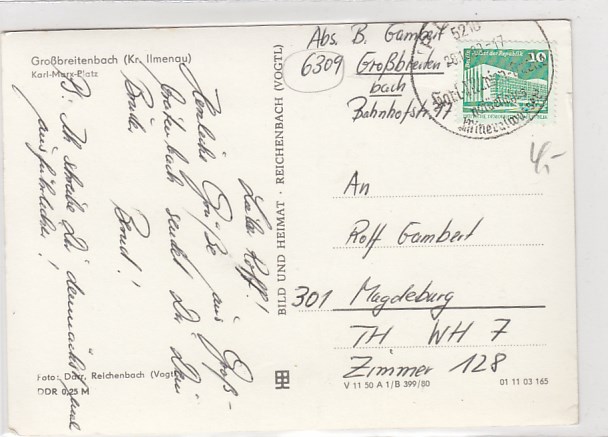 Großbreitenbach (Kr. Ilmenau)
Karl-Marx-Platz
Lieber Rolf!
Herzliche Grüße aus Groß-
breitenbach sendet Dir Dein
Bruder
Bernd!
P.: Ich schreibe Dir demnächst mal
ausführlicher!
Foto: Darr, Reichenbach (Vogtl)
DDR 0,25 M
BILD UND HEIMAT · REICHENBACH (VOGTL)
Abs. B. Gambert
6309 Großbreiten
bach
Bahnhofstr. 11
5210
Mineralwasser
10
4,-
An
Rolf Gambert
301 Magdeburg
TH WH 7
Zimmer 128
V 11 50 A 1/B 399/80
01 11 03 165